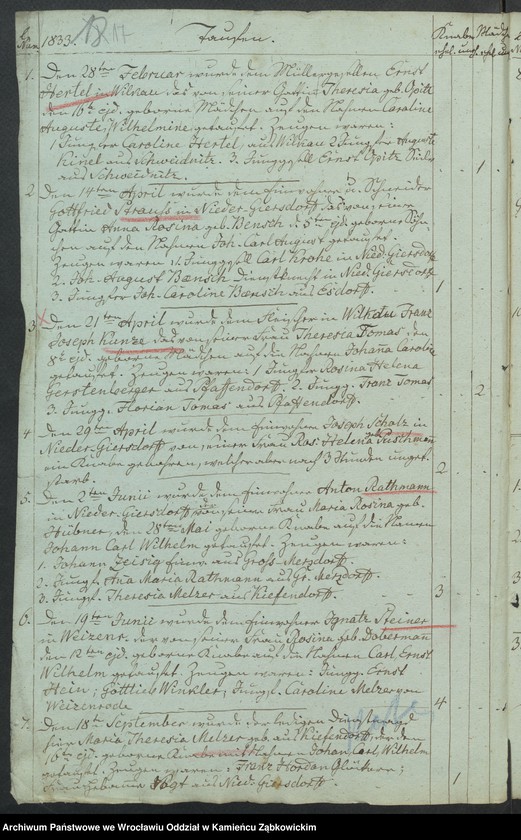 1833. Taufen.
Knaben Mädch
ehel. uneh. ehel. un
1. Den 28ten Februar wurde dem Müllergesellen Ernst
Hertel in Wilkau, das von seiner Gattin Theresia geb. Opitz
den 16t ejd. geborne Mädchen auf den Nahmen Caroline
Auguste Wilhelmine getauft. Zeugen waren:
1 Jungfer Caroline Hertel, aus Wilkau 2 Jungfer Auguste
aus Schweidnitz. 3. Junggsell Ernst Opitz
aus Schweidnitz. 1
2. Den 14ten April wurde dem Einwohner u. Schneider
Gottfried Strauß in Nieder Giersdorf, das von seiner
Gattin Anna Rosina geb. Bensch d. 5ten ejd. geborne Söhn-
chen auf den Nahmen Joh. Carl August getauft.
Zeugen waren: 1. Junggsell Carl Krohe in Nied. Giersdorf
2. Joh. August Bænsch Dienstknecht in Nied. Giersdorff
3. Jungfer Joh. Caroline Bænsch aus Esdorff. 1
3. Den 21ten April wurde dem in Wilkau Franz
Joseph Kunze das von seiner Frau Theresia Tomas den
8t ejd. geborne Mädchen auf die Nahmen Johanna Caroline
getauft. Zeugen waren: 1 Jungfer Rosina Helena
Gerstenberger aus Pfaffendorff. 2 Jungg. Franz Tomas
3. Jungg. Florian Tomas aus Pfaffendorff. 2
4. Den 29ten April wurde dem Einwohner Joseph Scholz in
Nieder-Giersdorff von seiner Frau Ros. Helena geb. Puschmann
ein Knabe geboren, welcher aber nach 3 Stunden ungef.
starb. 2
5. Den 2ten Junii wurde dem Einwohner Anton Rathmann
in Nieder-Giersdorff, von seiner Frau Maria Rosina geb.
Hübner, den 25ten Mai geborne Knabe auf die Namen
Johann Carl Wilhelm getauft. Zeugen waren:
1. Johann Zeisig Einw. aus Groß-Merzdorff.
2. Jungf. Ana Maria Rathmann aus Gr. Merzdorff.
3. Jungf. Theresia Melzer aus Kiefendorff. 3
6. Den 19ten Junii wurde dem Einwohner Ignatz Steiner
in Weizenr. der von seiner Frau Rosina geb. Dobermann
den 12ten ejd. geborne Knabe auf die Nahmen Carl Ernst
Wilhelm getauft. Zeugen waren: Jungg. Ernst
Hein; Gottlieb Winkler; Jungf. Caroline Melzer von
Weizenrode 4
7. Den 18te September wurde der ledigen Dienstmagd
Maria Theresia Melzer geb. aus Kiefendorff, der den
16ten ejd. geborne Knabe mit Nahmen Johan Carl Wilhelm
getauft. Zeugen waren: Franz Glückner;
Vogt aus Nied. Giersdorff. 1
Archiwum Państwowe we Wrocławiu Oddział w Kamieńcu Ząbkowickim